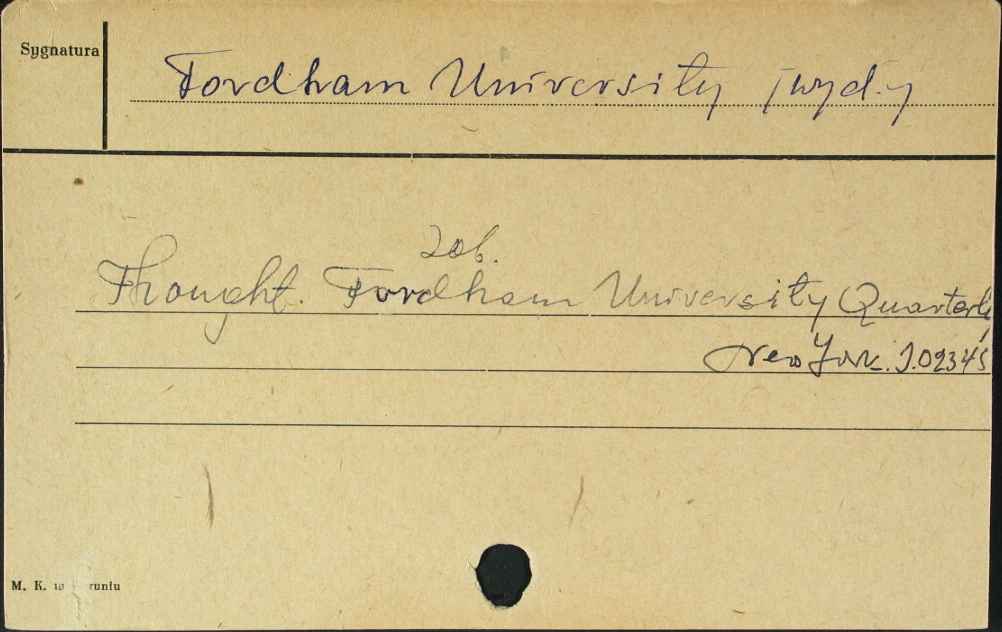 Sygnatura
Fordham University /wyd./
Zob.
Thought. Fordham University Quarterly
New York. J.02345
M. K. w runiu